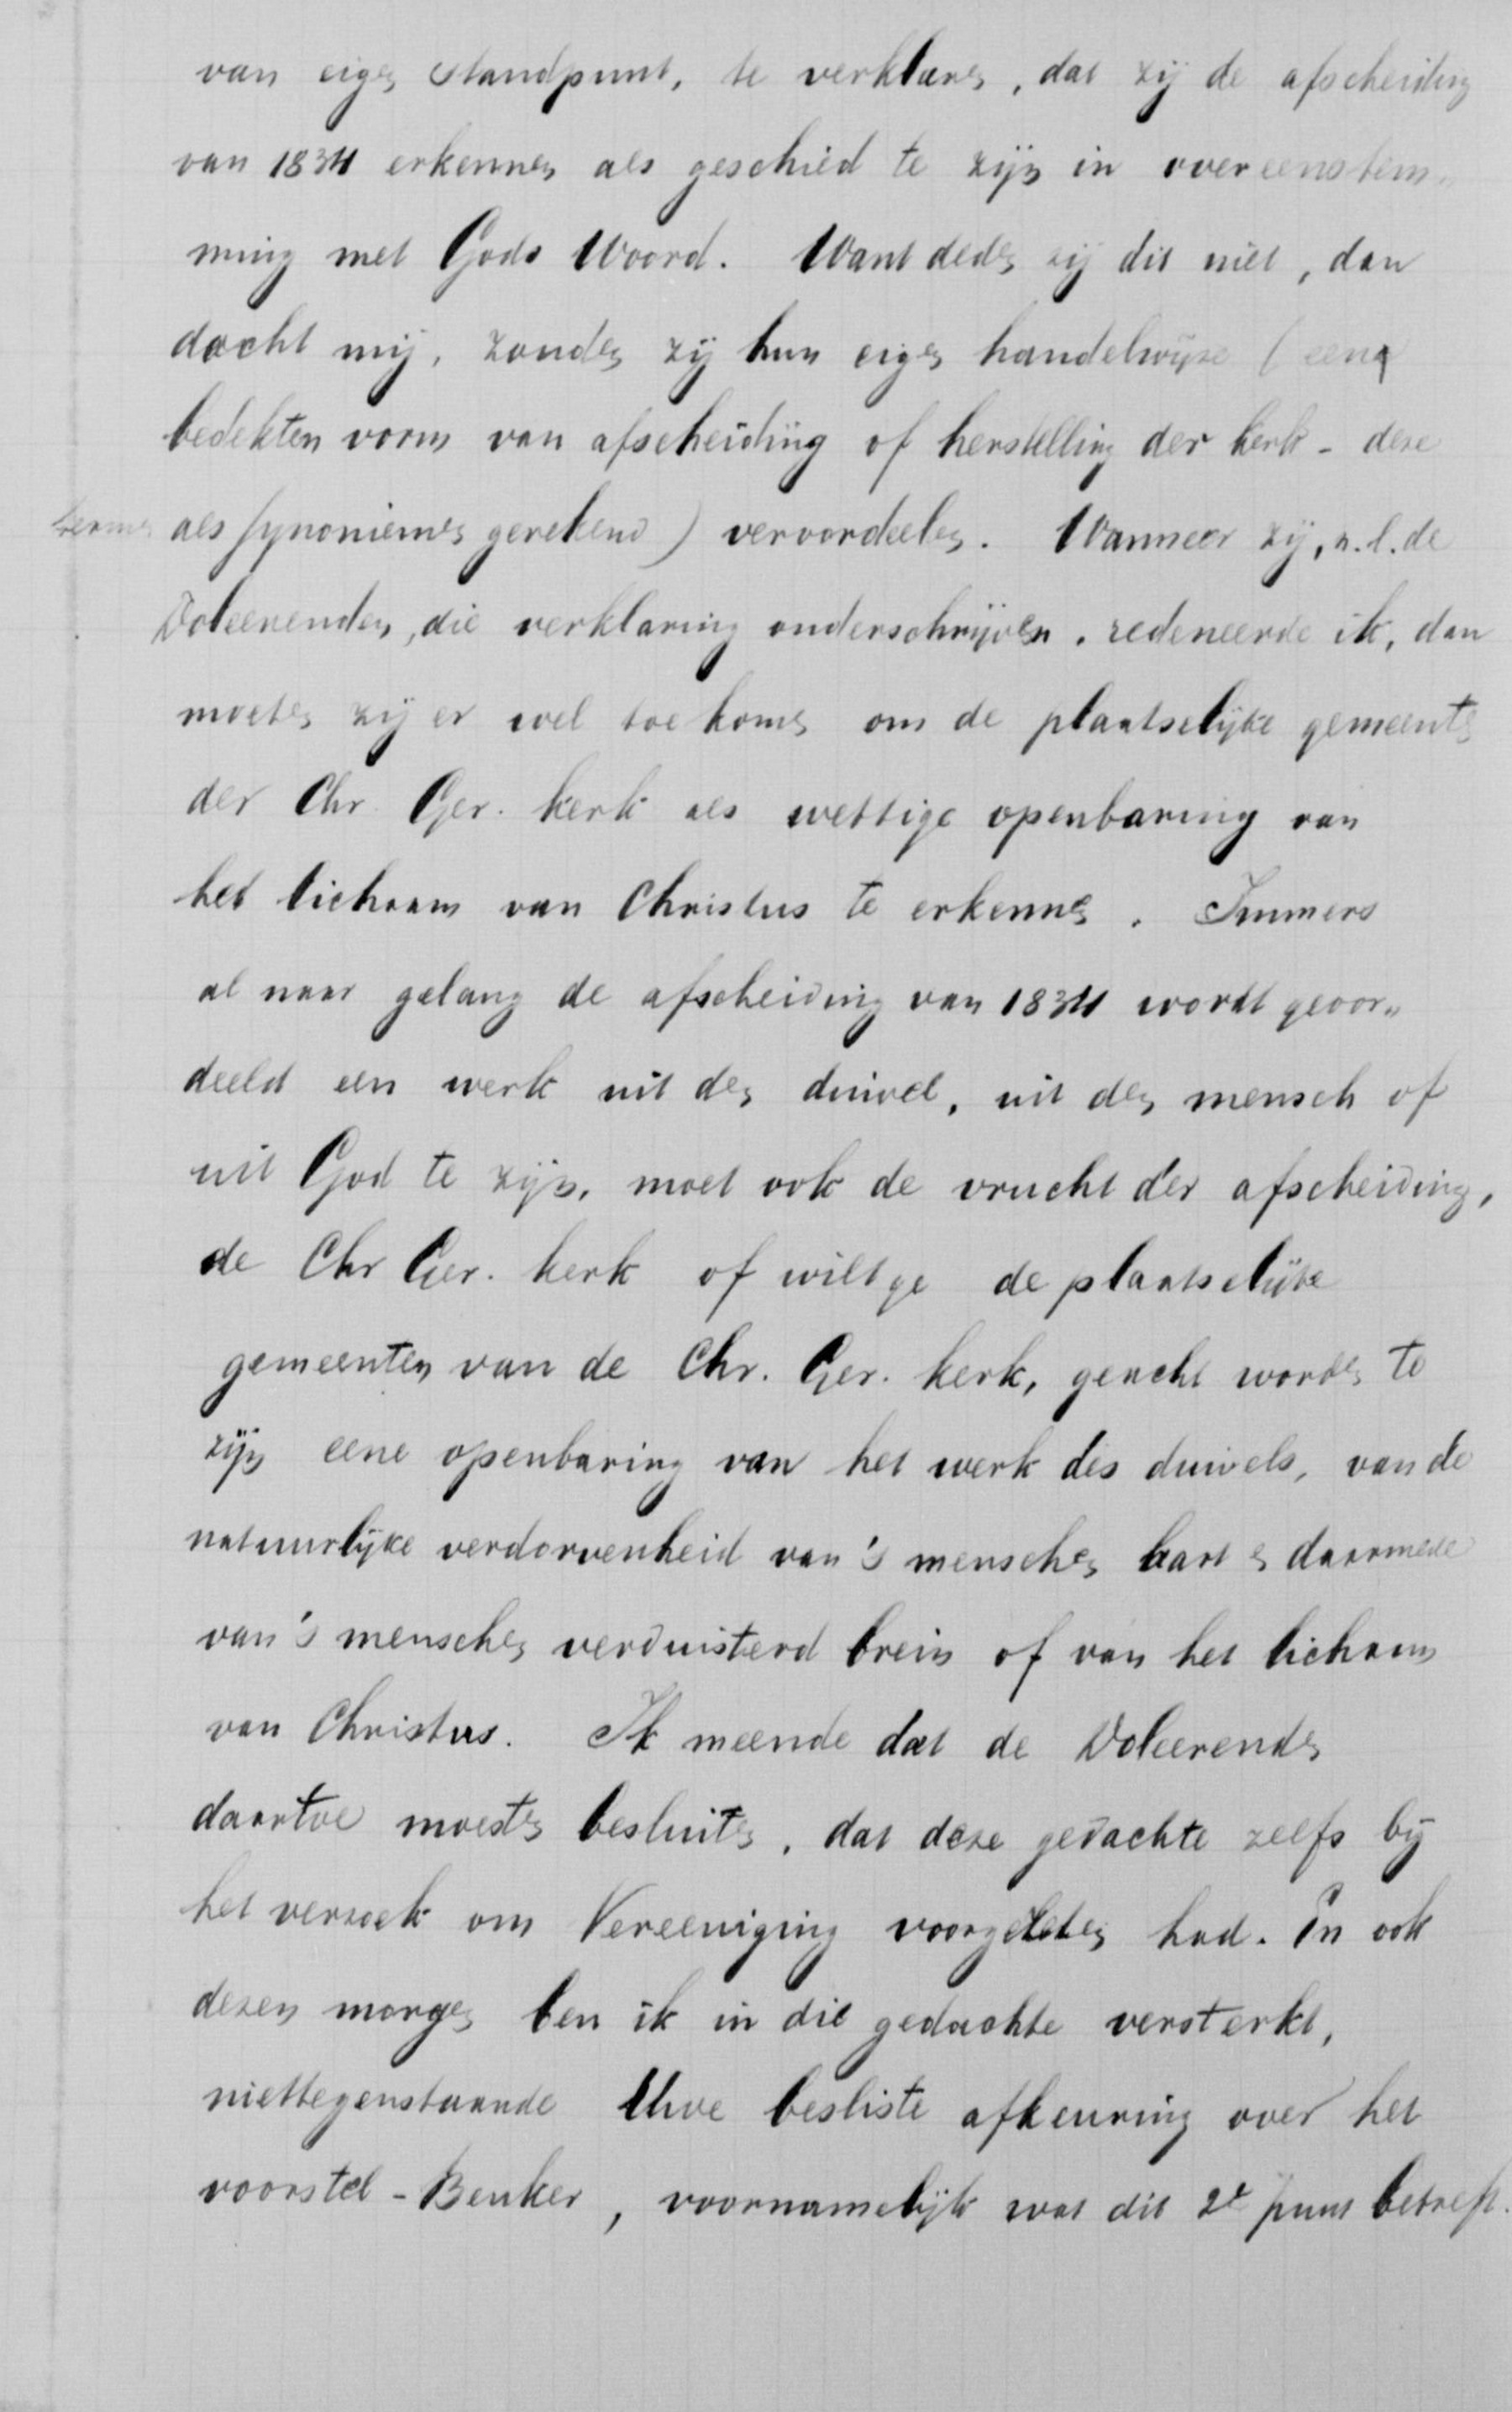 van eigen standpunt, te verklaren, dat zij de afscheiding
van 1834 erkennen als geschied te zijn in overeenstem-
ming met Gods Woord. Want deden zij dit niet, dan
docht mij, zouden zij hun eigen handelwijze (een
bedekten vorm van afscheiding of herstelling der kerk - deze
termen als synoniemen gerekend) veroordeelen. Wanneer zij, n.l. de
Doleerenden, die verklaring onderschrijven, redeneerde ik, dan
moeten zij er wel toe komen om de plaatselijke gemeenten
der Chr. Ger. kerk als wettige openbaring van
het lichaam van Christus te erkennen. Immers
al naar gelang de afscheiding van 1834 wordt geoor„
deeld een werk uit den duivel, uit den mensch of
uit God te zijn, moet ook de vrucht der afscheiding,
de Chr Ger. kerk of wilt ge de plaatselijke
gemeenten van de Chr. Ger. kerk, geacht worden te
zijn eene openbaring van het werk des duivels, van de
natuurlijke verdorvenheid van 's menschen hart en daarmede
van 's menschen verduisterd brein of van het lichaam
van Christus. Ik meende dat de Doleerenden
daartoe moesten besluiten, dat deze gedachte zelfs bij
het verzoek om Vereeniging voorgezeten had. En ook
dezen morgen ben ik in die gedachte versterkt,
niettegenstaande Uwe besliste afkeuring over het
voorstel - Beuker, voornamelijk wat dit 2e punt betreft.